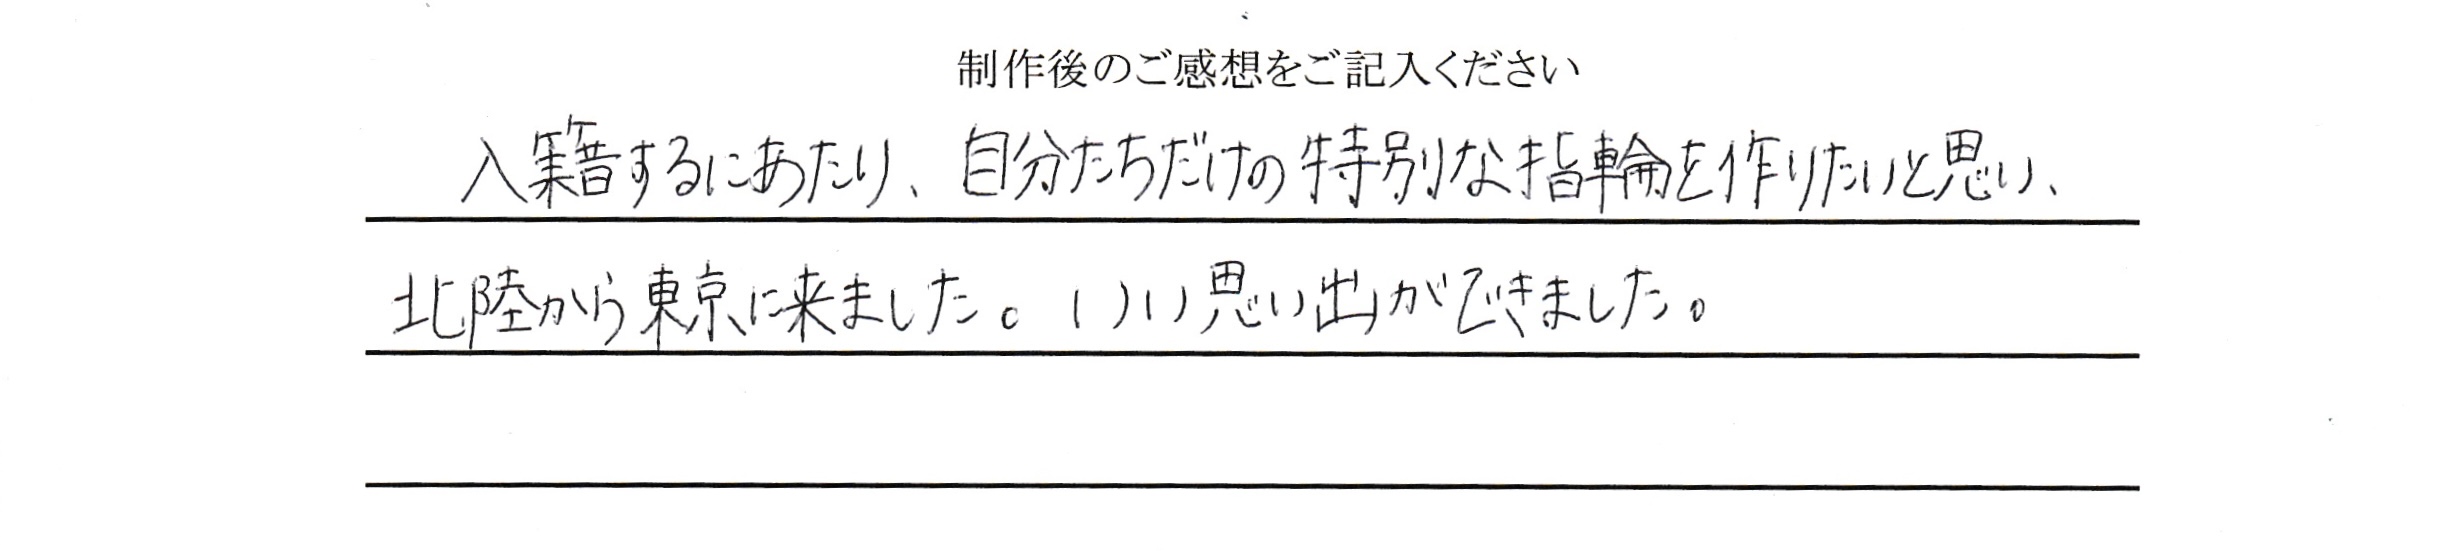 制作後のご感想をご記入ください
入籍するにあたり、自分たちだけの特別な指輪を作りたいと思い、
北陸から東京に来ました。いい思い出ができました。